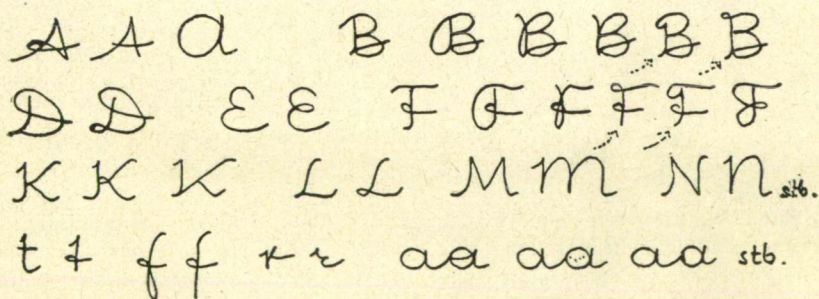 A A a B B B B B B
D D E E F F F F F F
K K K L L M M N N stb.
t t f f r r aa aa aa stb.